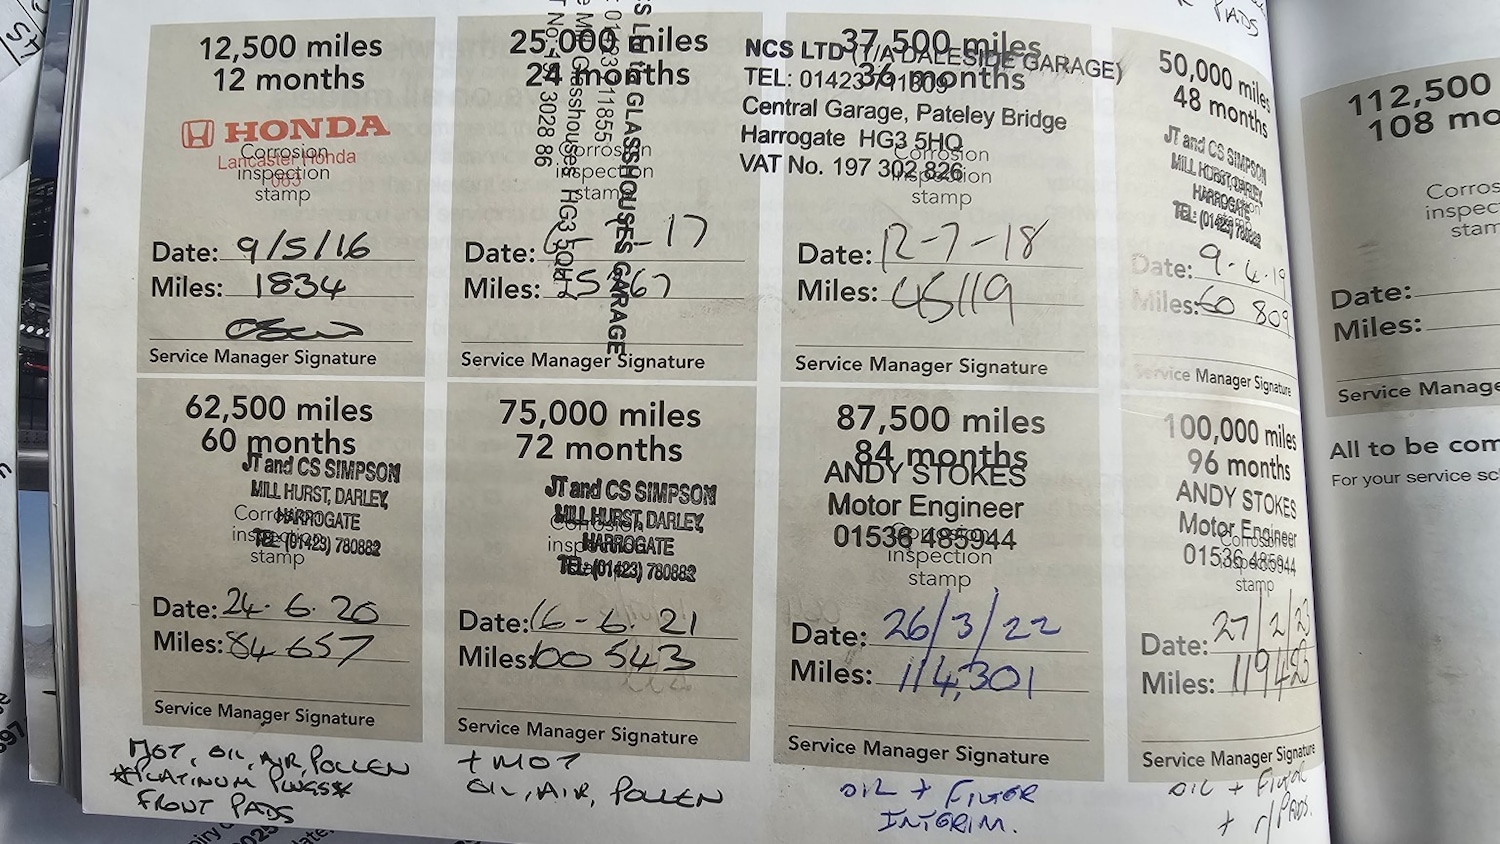 PADS
12,500 miles
12 months
HONDA
Lancaster Honda
Corrosion
inspection
stamp
Date: 9/5/16
Miles: 1834
Service Manager Signature
25,000 miles
24 months
GLASSHOUSES GARAGE
Glasshouses HG3 5QH
302886
Corrosion
inspection
stamp
Date: 17
Miles:
Service Manager Signature
37,500 miles
36 months
NCS LTD (T/A DALESIDE GARAGE)
TEL: 01423 711809
Central Garage, Pateley Bridge
Harrogate HG3 5HQ
VAT No. 197 302 826
Corrosion
inspection
stamp
Date: 12-7-18
Miles: 45119
Service Manager Signature
50,000 miles
48 months
JT and CS SIMPSON
MILL HURST, DARLEY,
HARROGATE
TEL: (01423) 780882
Date: 9.4.19
Miles: 60 809
Service Manager Signature
112,500
108 mo
Corros
inspec
stam
Date:
Miles:
Service Manage
All to be com
For your service sc
62,500 miles
60 months
JT and CS SIMPSON
MILL HURST, DARLEY,
HARROGATE
TEL: (01423) 780882
Corrosion
inspection
stamp
Date: 24.6.20
Miles: 84 657
Service Manager Signature
MOT, OIL, AIR, POLLEN
*PLATINUM PLUGS*
FRONT PADS
75,000 miles
72 months
JT and CS SIMPSON
MILL HURST, DARLEY,
HARROGATE
TEL: (01423) 780882
Corrosion
inspection
Date: 16-6.21
Miles: 100 543
Service Manager Signature
+ MOT
OIL, AIR, POLLEN
87,500 miles
84 months
ANDY STOKES
Motor Engineer
01536 485944
Corrosion
inspection
stamp
Date: 26/3/22
Miles: 114,301
Service Manager Signature
OIL + FILTER
INTERIM.
100,000 miles
96 months
ANDY STOKES
Motor Engineer
01536 485944
Corrosion
inspection
stamp
Date: 27/2/23
Miles:
Service Manager Signature
OIL + FILTER
+ r/PADS.